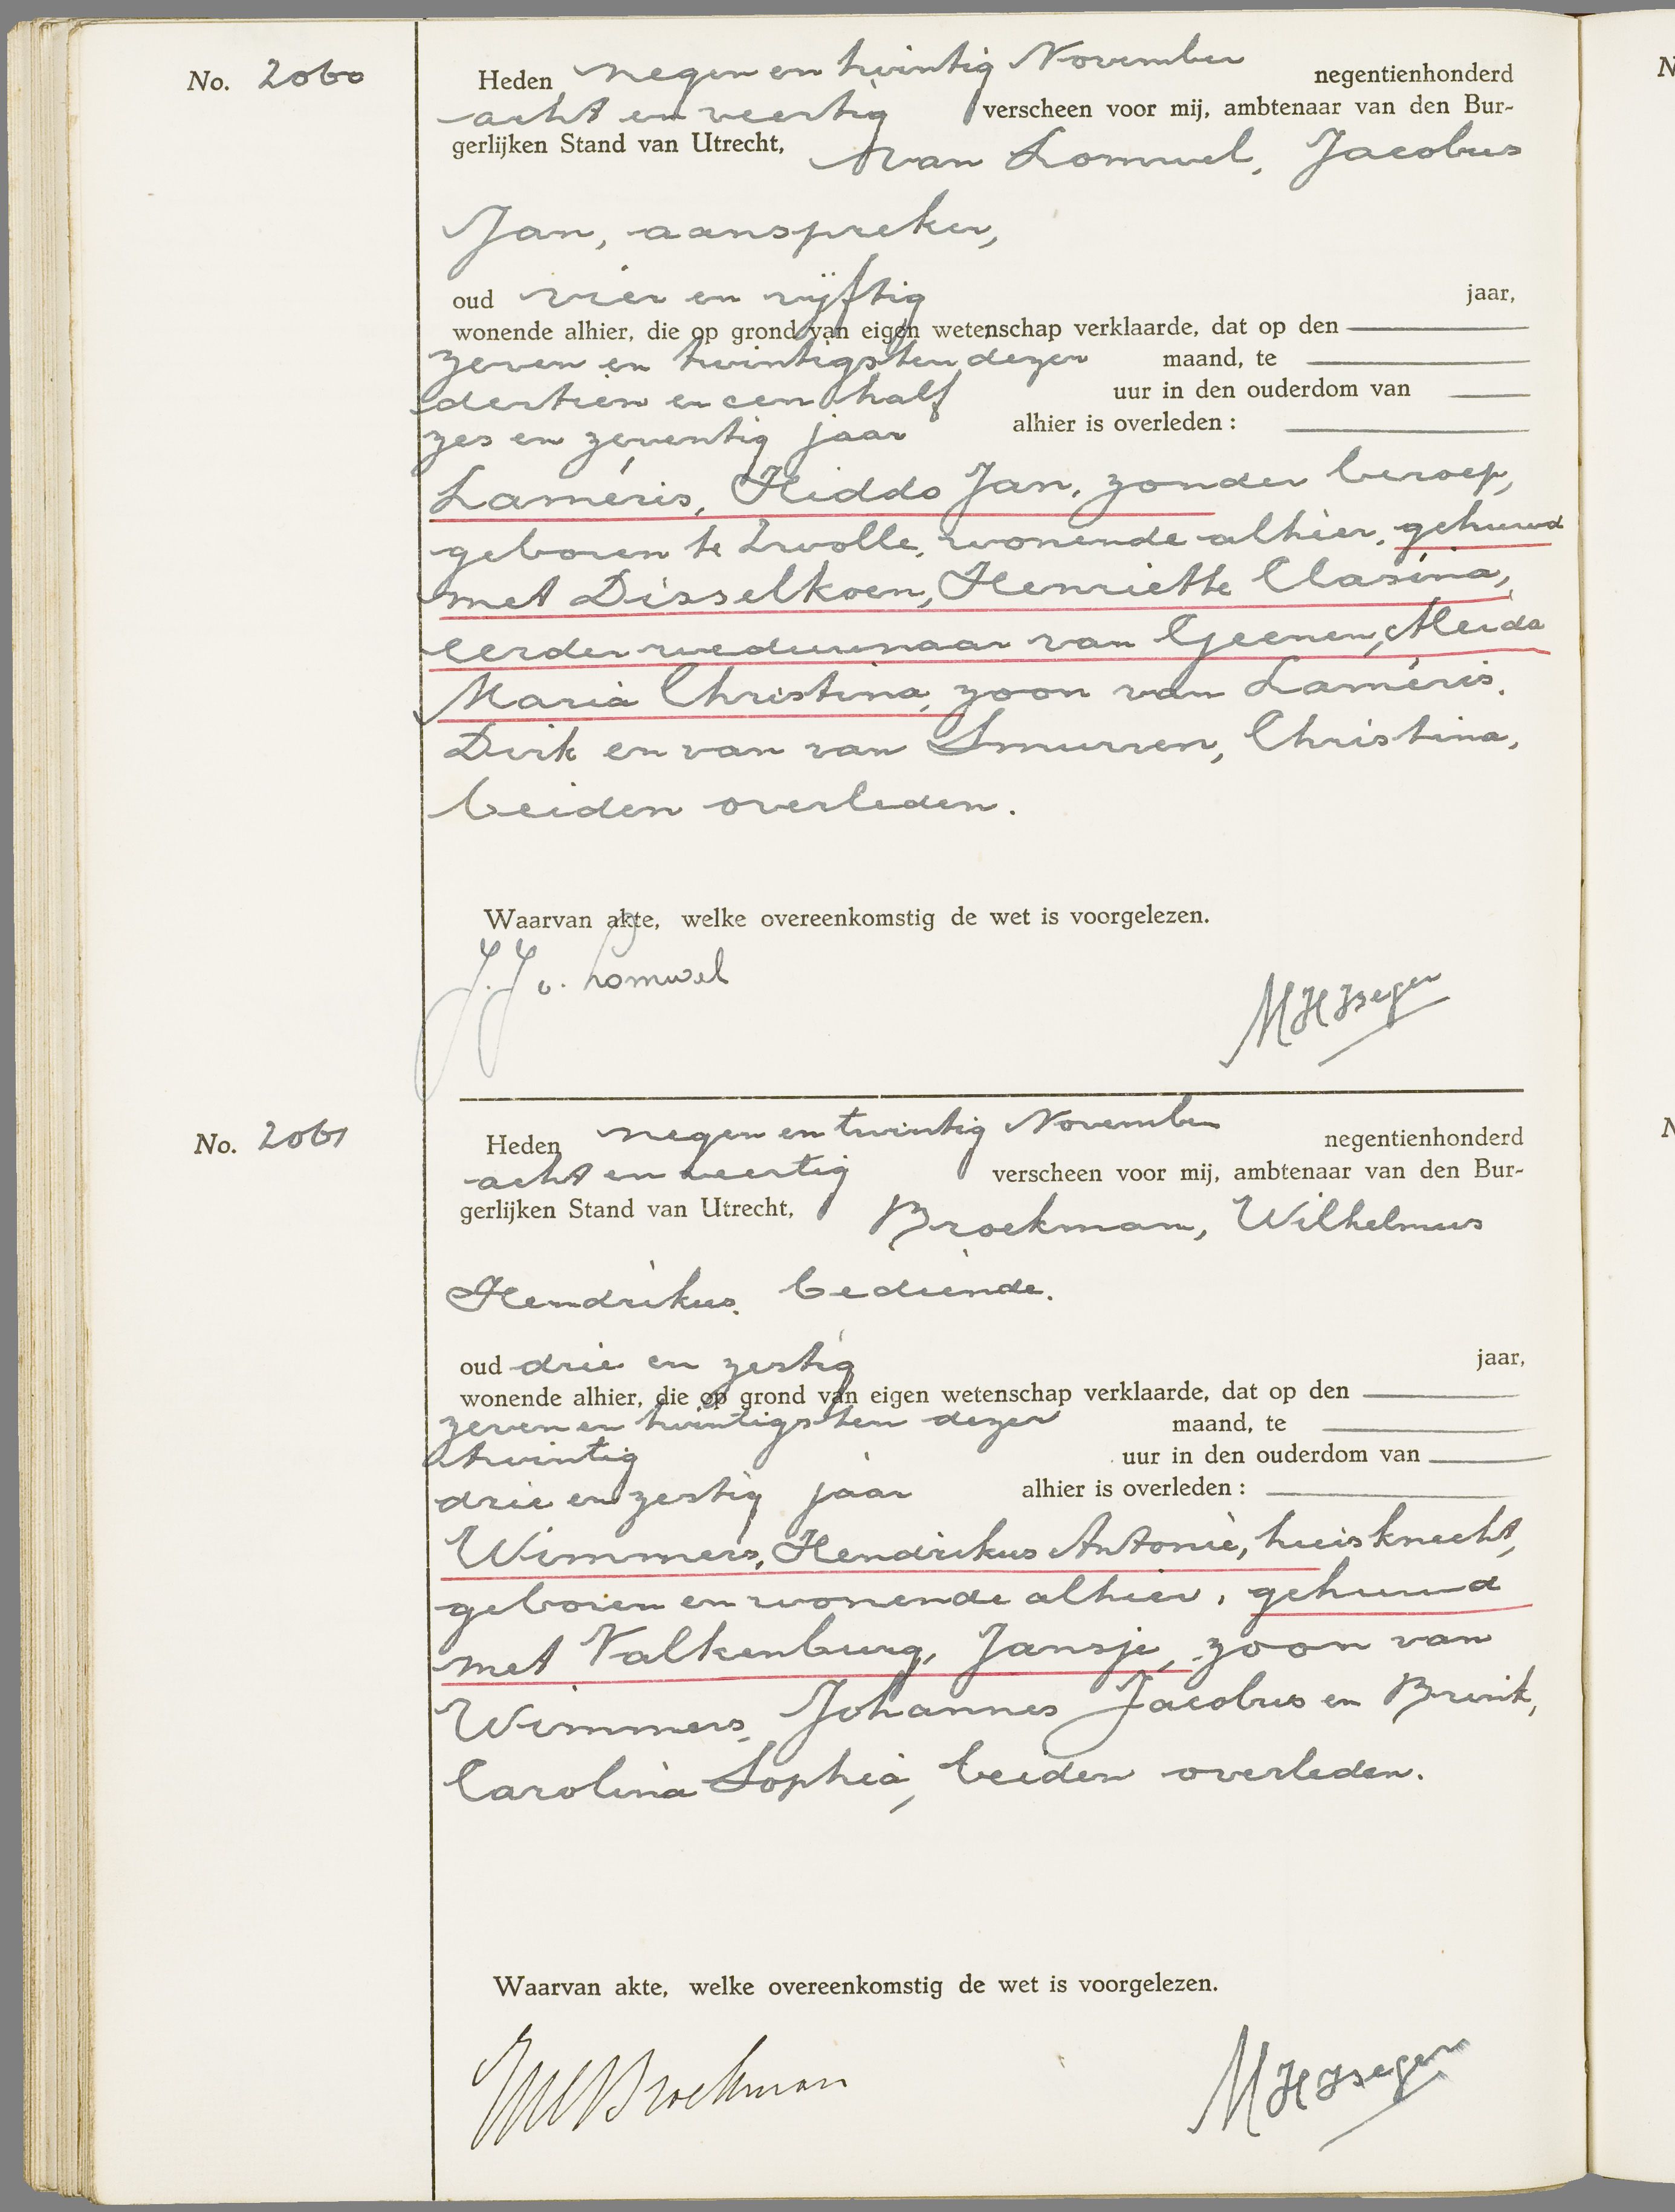 No. 2060
Heden negen en twintig November negentienhonderd
acht en veertig verscheen voor mij, ambtenaar van den Bur-
gerlijken Stand van Utrecht, van Lomwel, Jacobus
Jan, aanspreker,
oud vier en vijftig jaar,
wonende alhier, die op grond van eigen wetenschap verklaarde, dat op den
zeven en twintigsten dezer maand, te
dertien en een half uur in den ouderdom van
zes en zeventig jaar alhier is overleden :
Laméris, Hiddo Jan, zonder beroep,
geboren te Zwolle, wonende alhier, gehuwd
met Disselkoen, Henriette Clasina,
eerder weduwnaar van Geenen, Aleida
Maria Christina, zoon van Laméris,
Dirk en van van Smurren, Christina,
beiden overleden.
Waarvan akte, welke overeenkomstig de wet is voorgelezen.
J. J. v. Lomwel
M H
No. 2061
Heden negen en twintig November negentienhonderd
acht en veertig verscheen voor mij, ambtenaar van den Bur-
gerlijken Stand van Utrecht, Broekman, Wilhelmus
Hendrikus, bediende,
oud drie en zestig jaar,
wonende alhier, die op grond van eigen wetenschap verklaarde, dat op den
zeven en twintigsten dezer maand, te
twintig uur in den ouderdom van
drie en zestig jaar alhier is overleden :
Wimmers, Hendrikus Antonie, huisknecht,
geboren en wonende alhier, gehuwd
met Valkenburg, Jansje, zoon van
Wimmers, Johannes Jacobus en Brink,
Carolina Sophia, beiden overleden.
Waarvan akte, welke overeenkomstig de wet is voorgelezen.
Broekman
M H